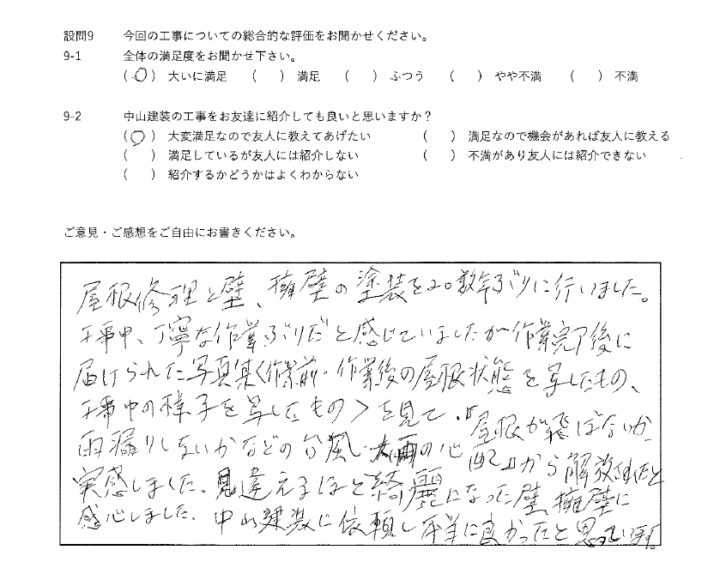 設問9 今回の工事についての総合的な評価をお聞かせください。
9-1 全体の満足度をお聞かせ下さい。
(○) 大いに満足 ( ) 満足 ( ) ふつう ( ) やや不満 ( ) 不満
9-2 中山建装の工事をお友達に紹介しても良いと思いますか?
(○) 大変満足なので友人に教えてあげたい ( ) 満足なので機会があれば友人に教える
( ) 満足しているが友人には紹介しない ( ) 不満があり友人には紹介できない
( ) 紹介するかどうかはよくわからない
ご意見・ご感想をご自由にお書きください。
屋根修理と壁、擁壁の塗装を20数年ぶりに行いました。
工事中、丁寧な作業ぶりだと感じていましたが作業完了後に
届けられた写真集<作業前・作業後の屋根状態を写したもの、
工事中の様子を写したもの>を見て、"屋根が飛ばないか、
雨漏りしないかなどの台風・大雨の心配"から解放されたと
実感しました。見違えるほど綺麗になった壁、擁壁に
感心しました。中山建装に依頼し本当に良かったと思って